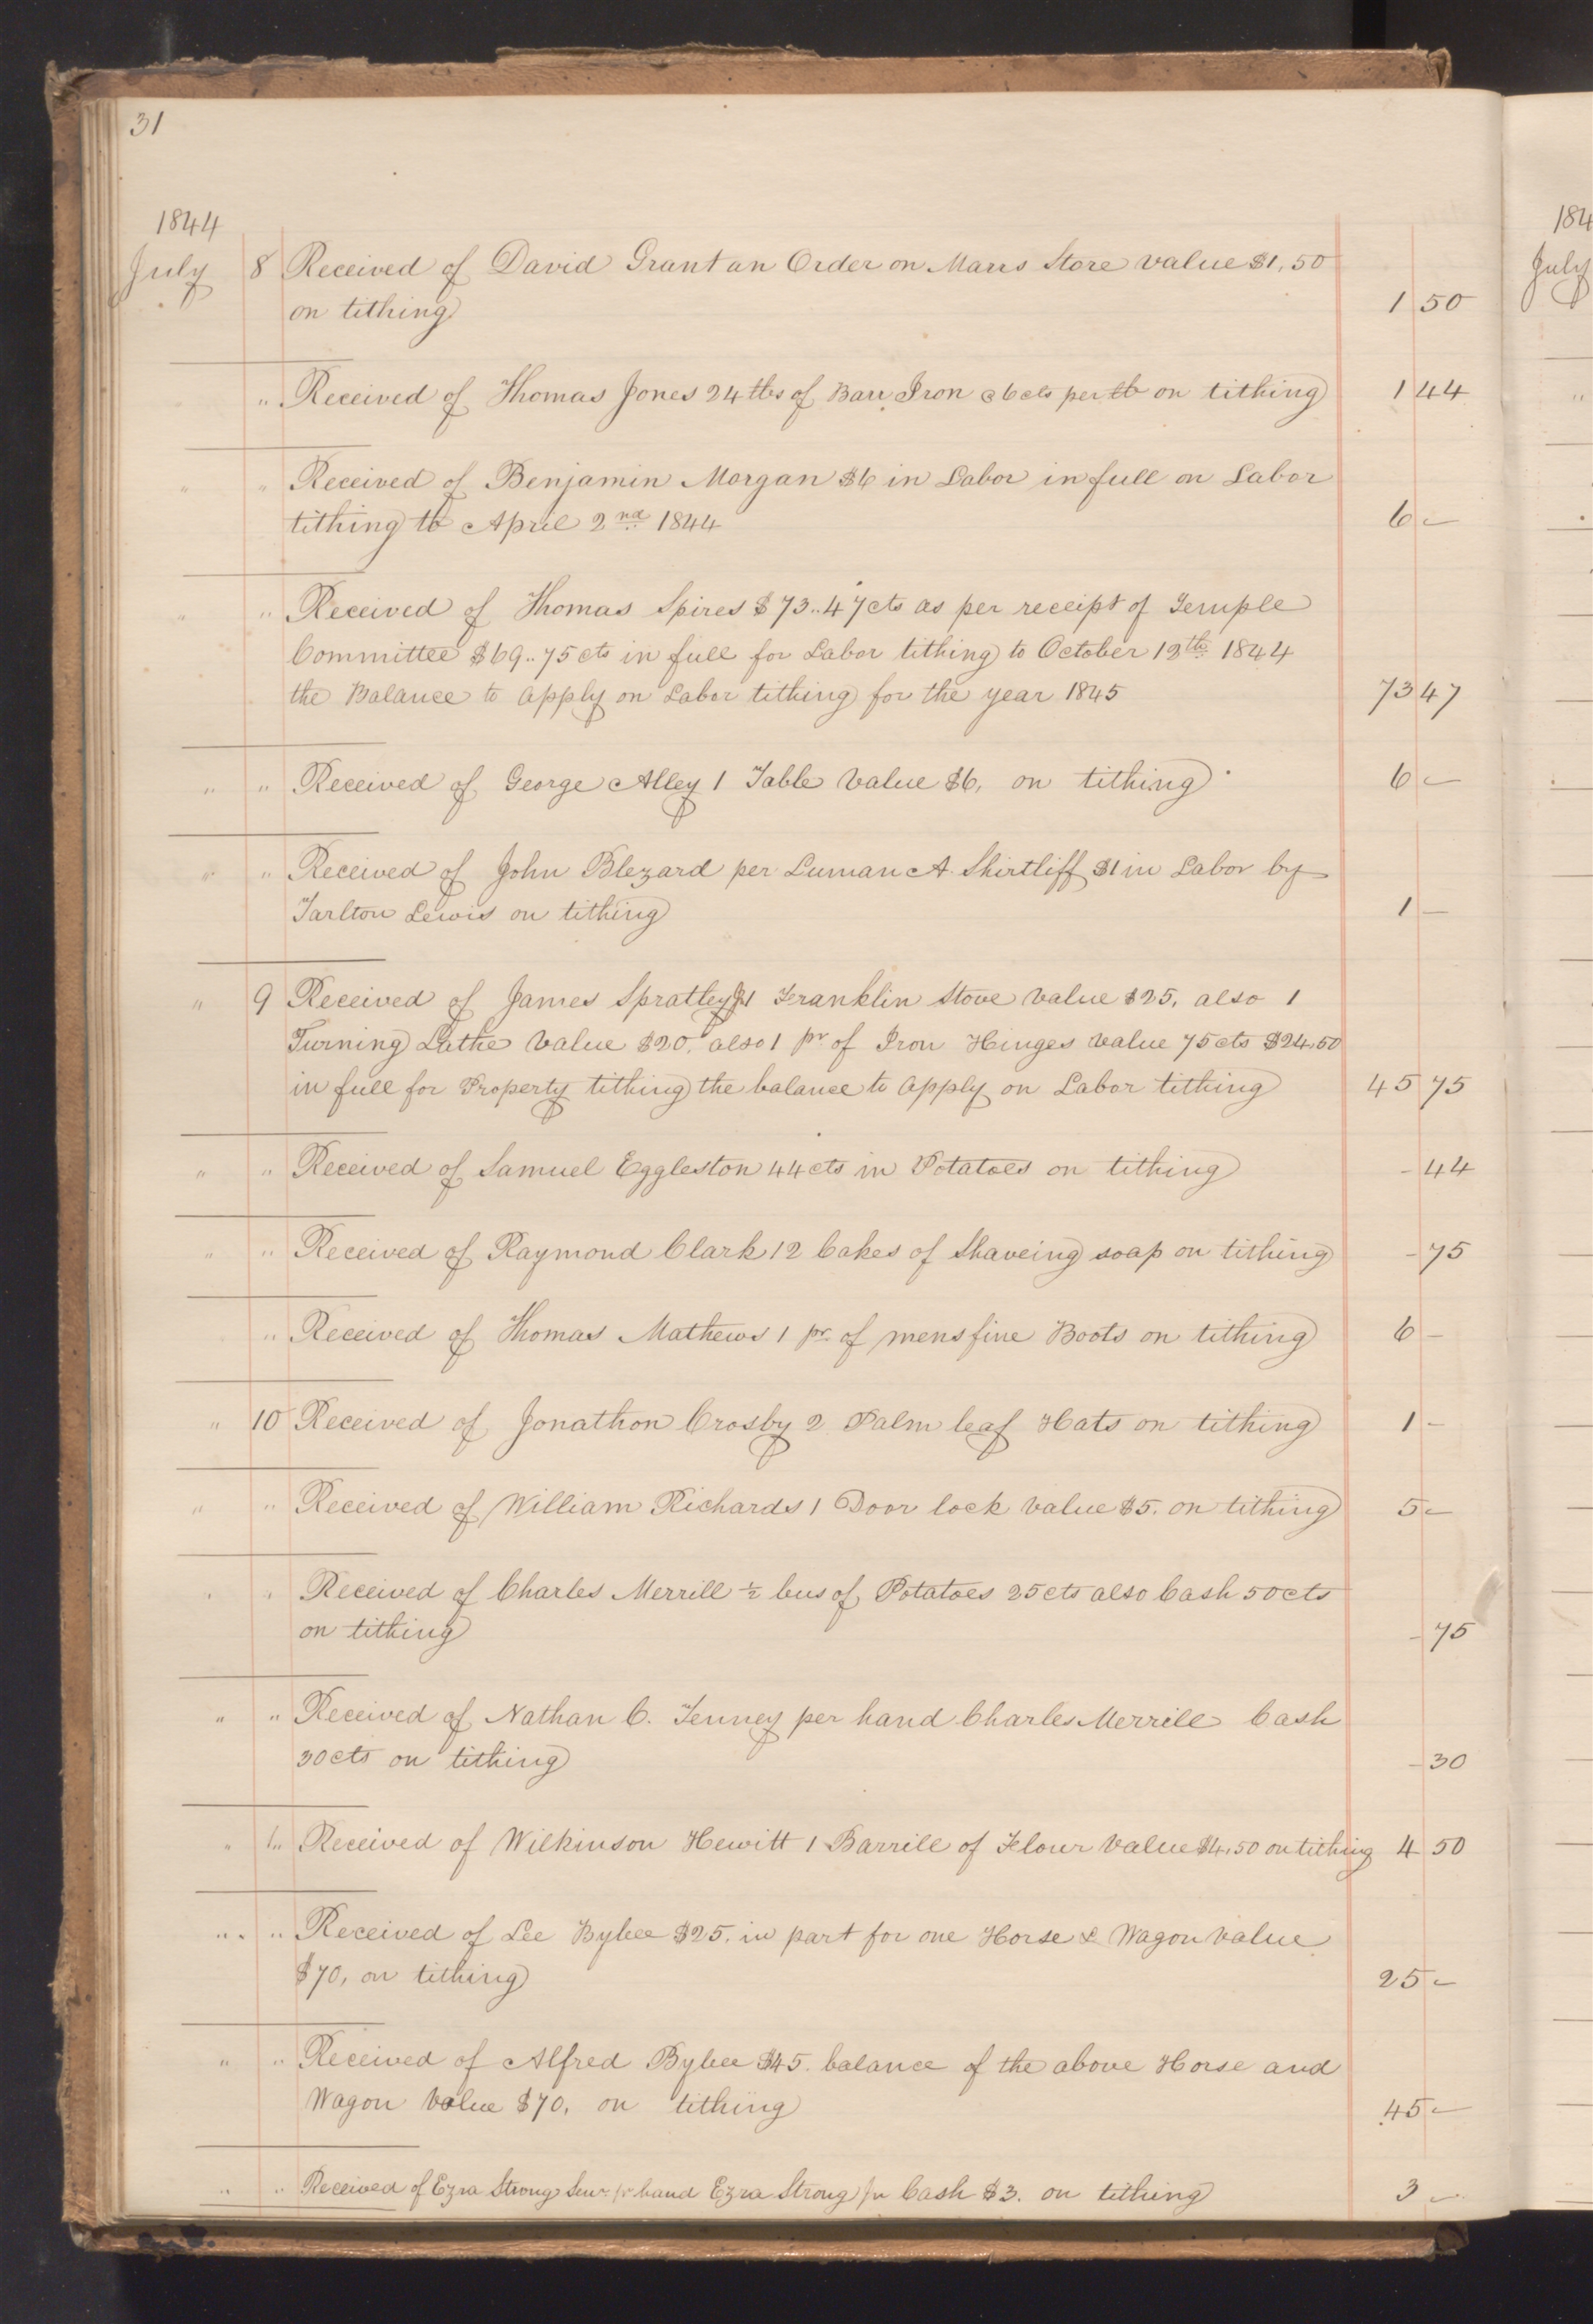 31
1844
July 8 Received of David Grant an Order on Marrs Store value $1,50
on tithing 1 50
" Received of Thomas Jones 24 lbs of Barr Iron @ 6cts per lb on tithing 1 44
" " Received of Benjamin Morgan $6 in Labor in full on Labor
tithing to April 2nd 1844 6 –
" " Received of Thomas Spires $73..47cts as per receipt of Temple
Committee $69..75cts in full for Labor tithing to October 12th 1844
the Balance to apply on Labor tithing for the year 1845 73 47
" " Received of George Alley 1 Table value $6, on tithing 6 –
" " Received of John Blezard per Luman A. Shirtliff $1 in Labor by
Tarlton Lewis on tithing 1 –
" 9 Received of James Spratley 1 Franklin Stove value $25, also 1
Turning Lathe value $20, also 1 pr of Iron Hinges value 75cts $24,50
in full for Property tithing the balance to apply on Labor tithing 45 75
" " Received of Samuel Eggleston 44cts in Potatoes on tithing – 44
" " Received of Raymond Clark 12 Cakes of Shaveing soap on tithing – 75
" Received of Thomas Mathews 1 pr of mens fine Boots on tithing 6 –
" 10 Received of Jonathon Crosby 2 Palm leaf Hats on tithing 1 –
" " Received of William Richards 1 Door lock value $5. on tithing 5 –
" " Received of Charles Merrill ½ bus of Potatoes 25cts also Cash 50cts
on tithing – 75
" " Received of Nathan C. Tenney per hand Charles Merrill Cash
30cts on tithing – 30
" " Received of Wilkinson Hewitt 1 Barrill of Flour value $4,50 on tithing 4 50
" " Received of Lee Bybee $25. in part for one Horse & Wagon value
$70, on tithing 25 –
" " Received of Alfred Bybee $45. balance of the above Horse and
Wagon value $70, on tithing 45 –
" " Received of Ezra Strong Senr pr hand Ezra Strong Jr Cash $3. on tithing 3 –
184
July